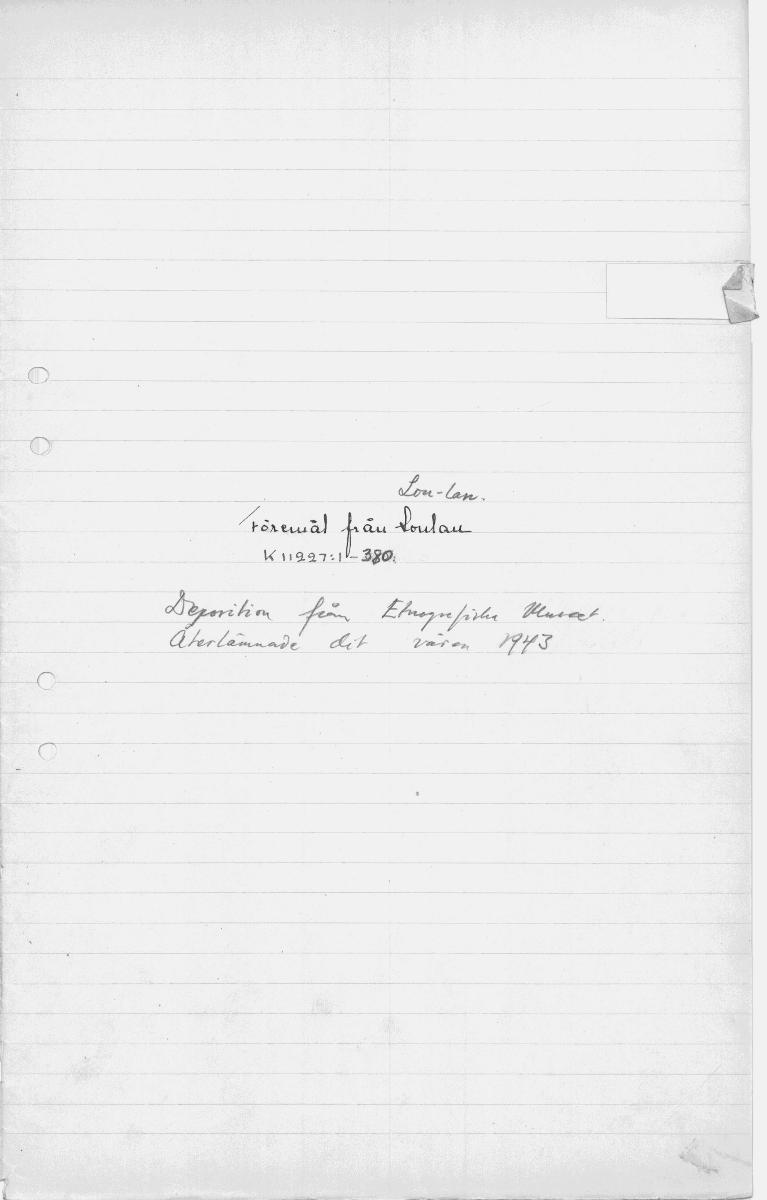 Lou-lan.
Föremål från Loulan
K 11227:1-380.
Deposition från Etnografiska Museet.
Återlämnade dit våren 1943